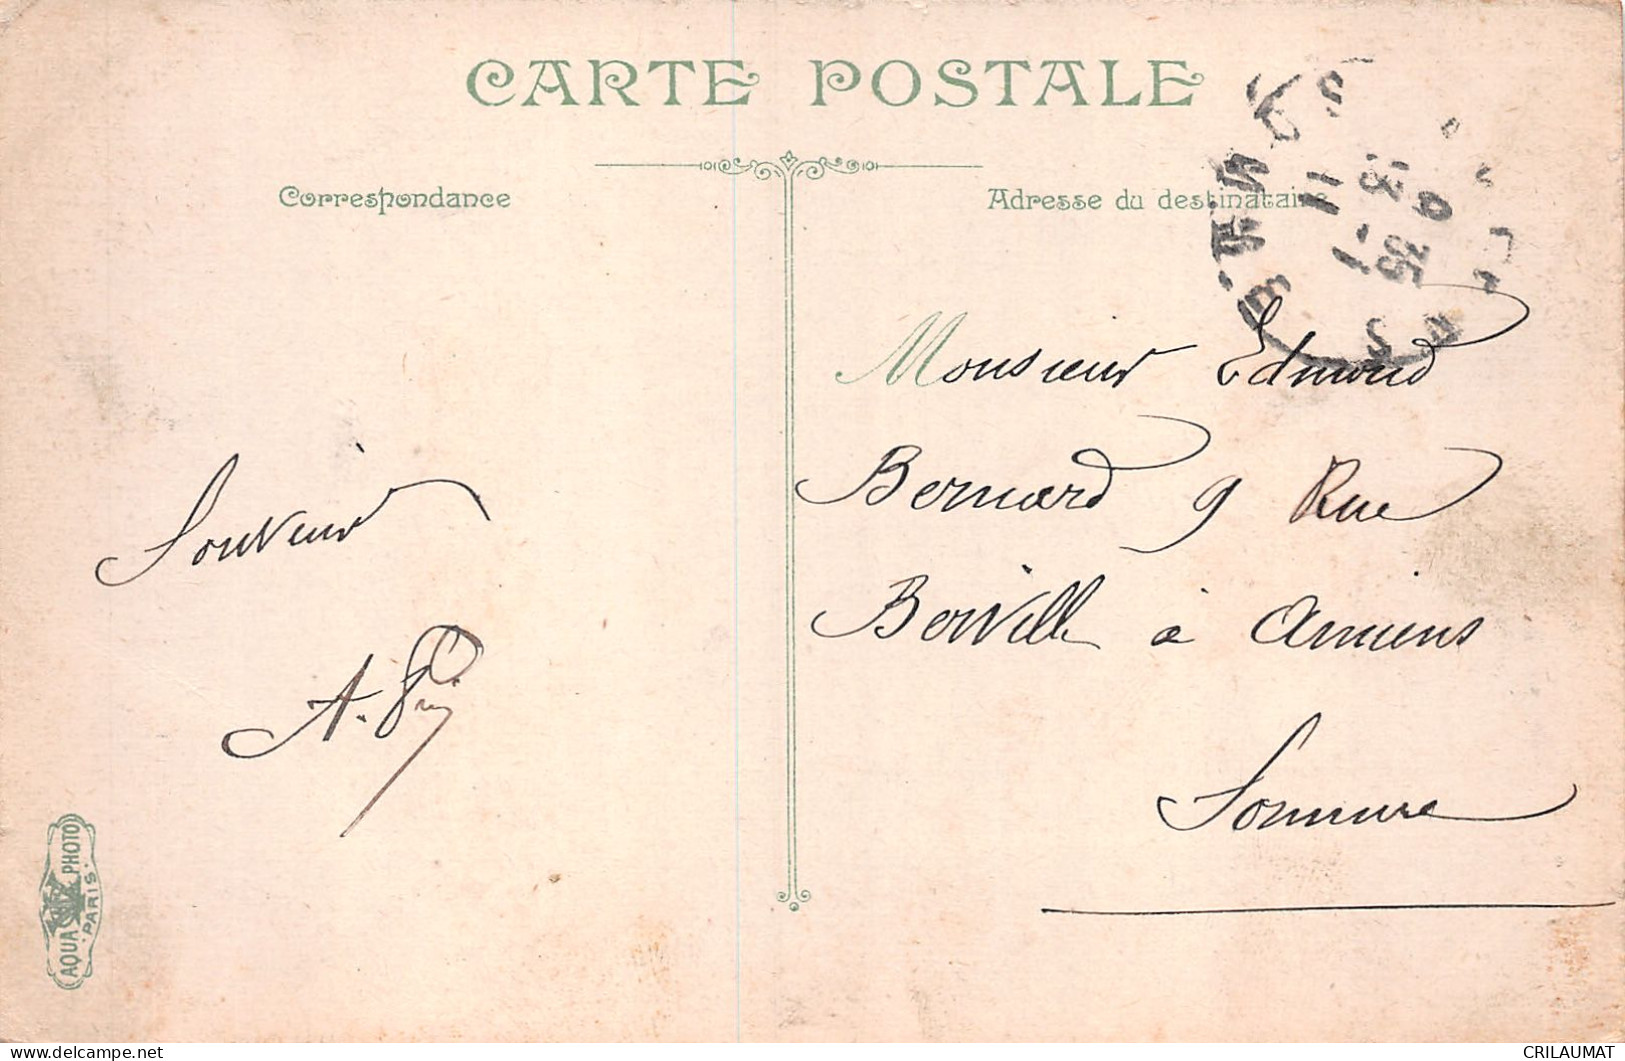 CARTE POSTALE
Correspondance
Adresse du destinataire
Monsieur Edmond
Bernard 9 Rue
Berville à Amiens
Somme
Souvenir
A.
AQUA PHOTO
PARIS
13 9
11
35
delcampe.net
CRILAUMAT